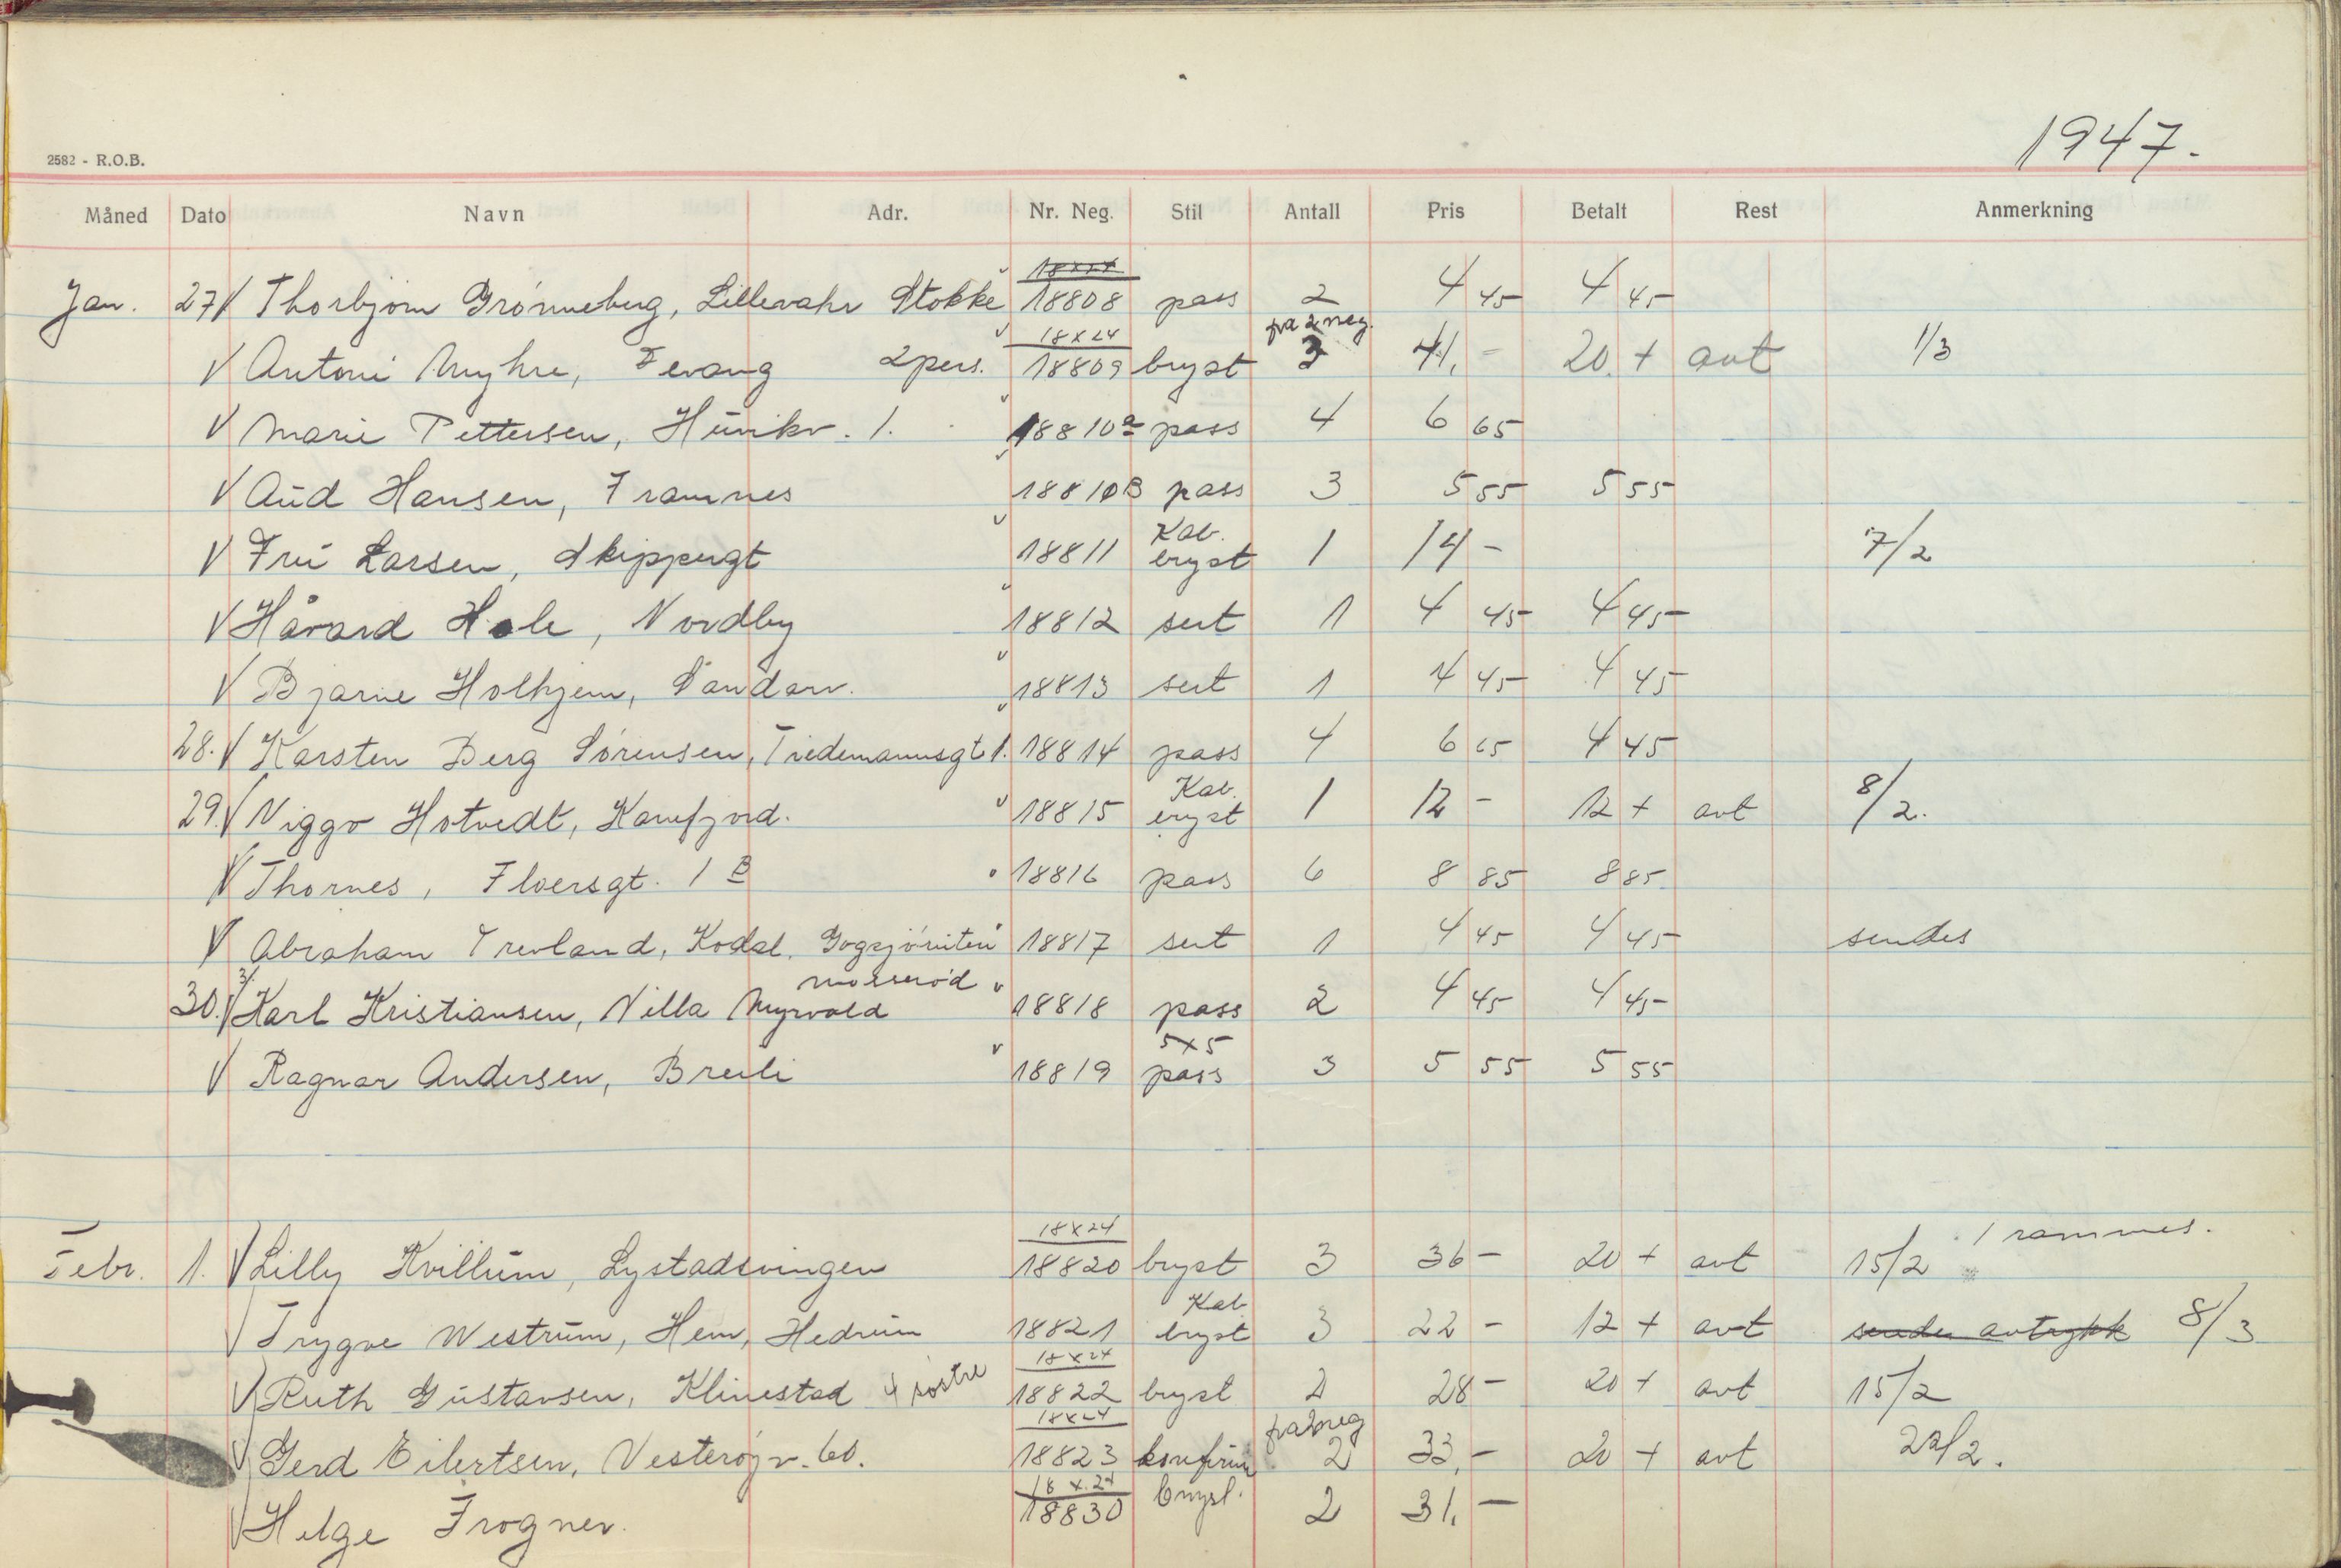 1947.
2582 - R.O.B.
Måned Dato Navn Adr. Nr. Neg. Stil Antall Pris Betalt Rest Anmerkning
18x24
Jan. 27 V Thorbjørn Grønneberg, Lillevahr Stokke 18808 pass 2 4 45 4 45
18x24 fra 2 neg.
V Antoni Myhre, Fevang 2 pers. 18809 bryst 3 41,- 20. + avt 1/3
V Marie Pettersen, Hunikv. 1. 18810a pass 4 6 65
V Aud Hansen, Framnes 18810B pass 3 5 55 5 55
Kab.
V Fru Larsen, Skippergt 18811 bryst 1 14 - 7/2
V Håvard Hole, Nordby 18812 sert 1 4 45 4 45
V Bjarne Holhjem, Sandarv. 18813 sert 1 4 45 4 45
28. V Karsten Berg Sørensen, Tiedemannsgt 1. 18814 pass 4 6 65 4 45
Kab.
29. V Viggo Hotvedt, Kamfjord. 18815 bryst 1 12 - 12 + avt 8/2.
V Thornes, Floersgt. 1 B 18816 pass 6 8 85 8 85
V Abraham Trevland, Kodal, 18817 sert 1 4 45 4 45 sendes
moserød
30. V Karl Kristiansen, Villa Myrvold 18818 pass 2 4 45 4 45
5x5
V Ragnar Andersen, Breili 18819 pass 3 5 55 5 55
18x24 1 rammes.
Febr. 1. V Lilly Kvillum, Lystadsvingen 18820 bryst 3 36 - 20 + avt 15/2
Kab
V Trygve Westrum, Hem, Hedrum 18821 bryst 3 22 - 12 + avt sendes avtrykk 8/3
18x24
V Ruth Gustavsen, Klinestad 4 søstre 18822 bryst 2 28 - 20 + avt 15/2
18x24 fra 2 neg
V Gerd Eilertsen, Vesterøyv. 60. 18823 konfirm 2 33,- 20 + avt 22/2.
18 x 24
V Helge Frogner. 18830 bryst. 2 31,-